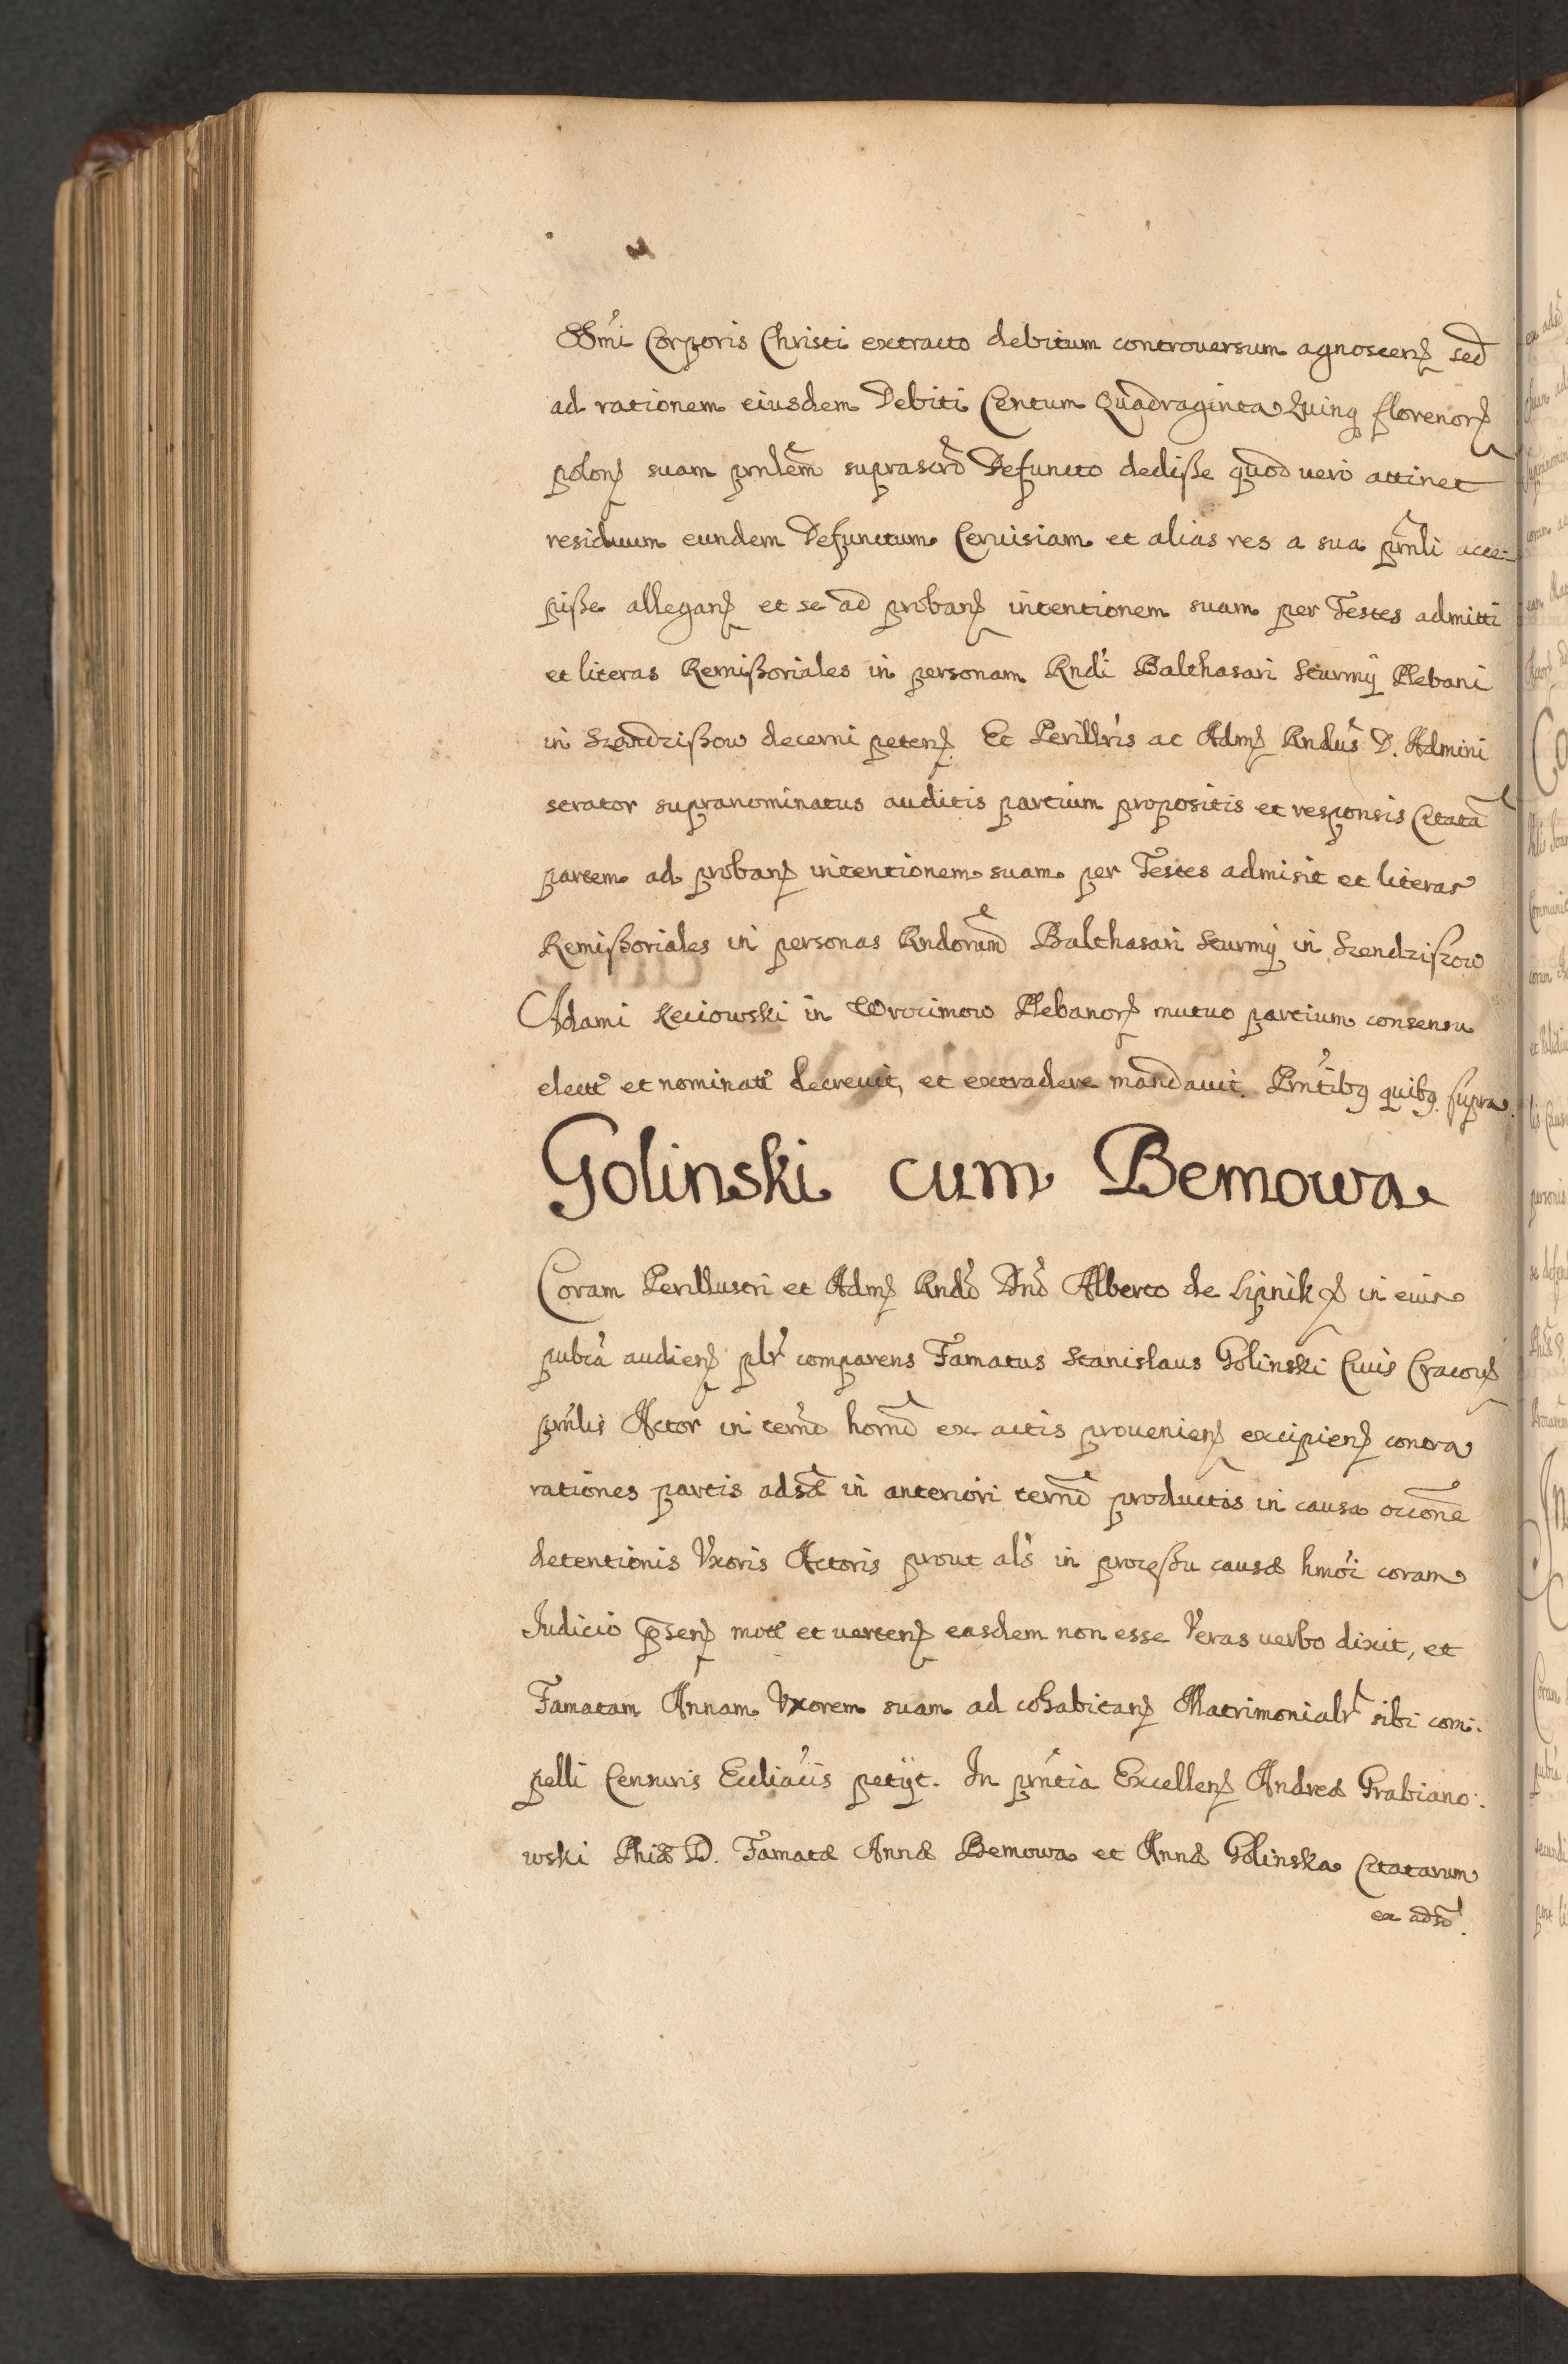 SSmi Corporis Christi extracto debitum controuersum agnoscen sed
ad rationem eiusdem Debiti Centum Quadraginta Quinq florenor
polon suam prnlem suprascrō Defuncto dediße quod uero attinet
residuum eundem Defunctum Ceruisiam et alias res a sua prnli acce-
piße allegan et se ad proban intentionem suam per Testes admitti
et literas Remißoriales in personam Rndi Balthasari Sturmÿ Plebani
in Szendzißow decerni peten. Et Perillris ac Adm Rndus D. Admini
strator supranominatus auditis partium propositis et responsis Citata
partem ad proban intentionem suam per Testes admisit et literas
Remißoriales in personas Rndorum Balthasari Sturmÿ in Szendziszow
Adami Keciowski in Wrocimow Plebanor mutuo partium consensu
elect et nominat decreuit, et extradere mandauit. Prntibq quibq supra.
Golinski cum Bemowa
Coram Perillustri et Adm Rndo Dno Alberto de Lipnik in eius
publca audien plr comparens Famatus Stanislaus Golinski Ciuis Cracou
prnlis Actor in termo horno ex actis prouenien excipien contra
rationes partis adsæ in anteriori termo productas in causa occone
detentionis Vxoris Actoris prout als in proceßu causæ hmoi coram
Iudicio psen motæ et uerten easdem non esse Veras uerbo dixit, et
Famatam Annam Vxorem suam ad cohabitan Matrimonialr sibi com:
pelli Censuris Eccliacis petÿt. In prntia Excellen Andreæ Grabiano:
wski Phiæ D. Famatæ Annæ Bemowa et Annæ Golinska Citatarum
ex adso.